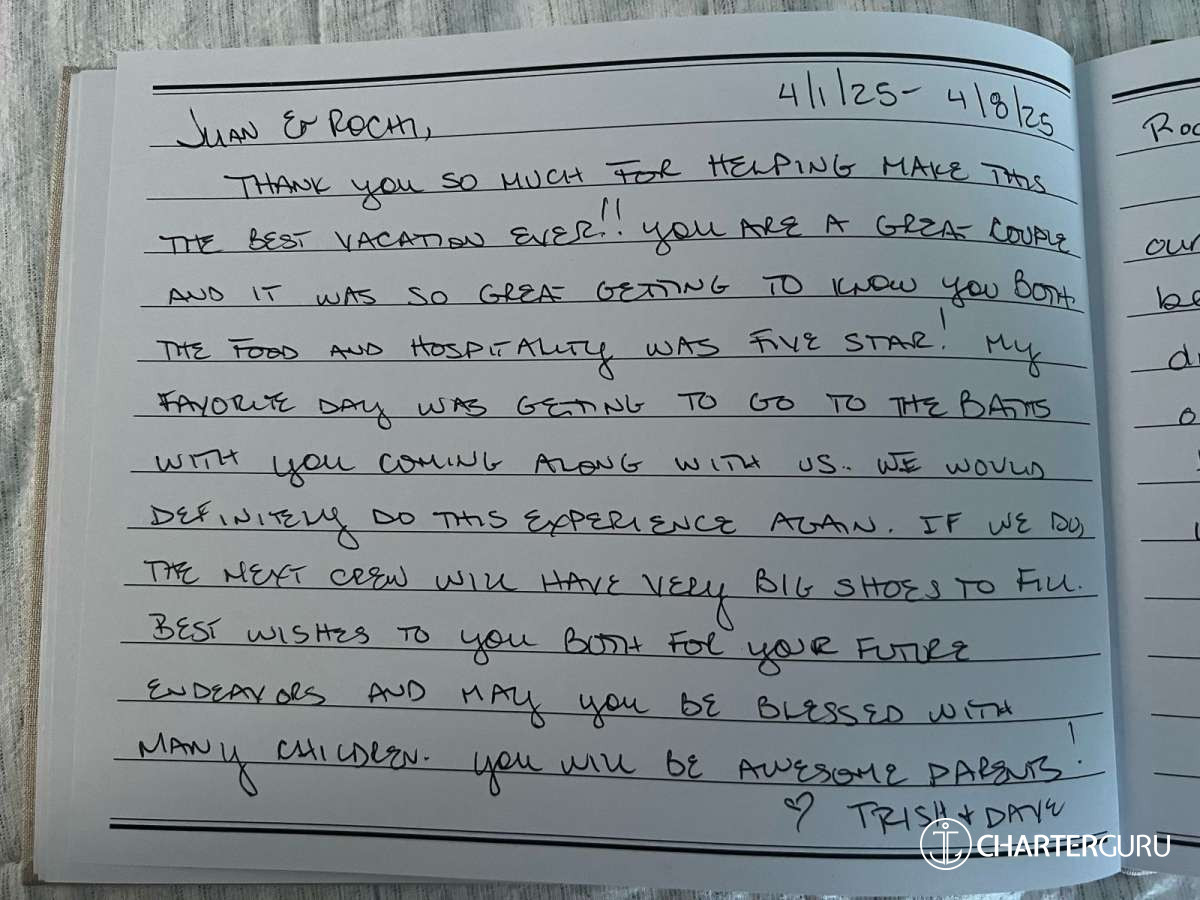 4/1/25 - 4/8/25
JUAN & ROCHI,
THANK YOU SO MUCH FOR HELPING MAKE THIS
THE BEST VACATION EVER!! YOU ARE A GREAT COUPLE
AND IT WAS SO GREAT GETTING TO KNOW YOU BOTH.
THE FOOD AND HOSPITALITY WAS FIVE STAR! MY
FAVORITE DAY WAS GETTING TO GO TO THE BATHS
WITH YOU COMING ALONG WITH US. WE WOULD
DEFINITELY DO THIS EXPERIENCE AGAIN. IF WE DO,
THE NEXT CREW WILL HAVE VERY BIG SHOES TO FILL.
BEST WISHES TO YOU BOTH FOR YOUR FUTURE
ENDEAVORS AND MAY YOU BE BLESSED WITH
MANY CHILDREN. YOU WILL BE AWESOME PARENTS!
♡ TRISH + DAVE
CHARTERGURU
our